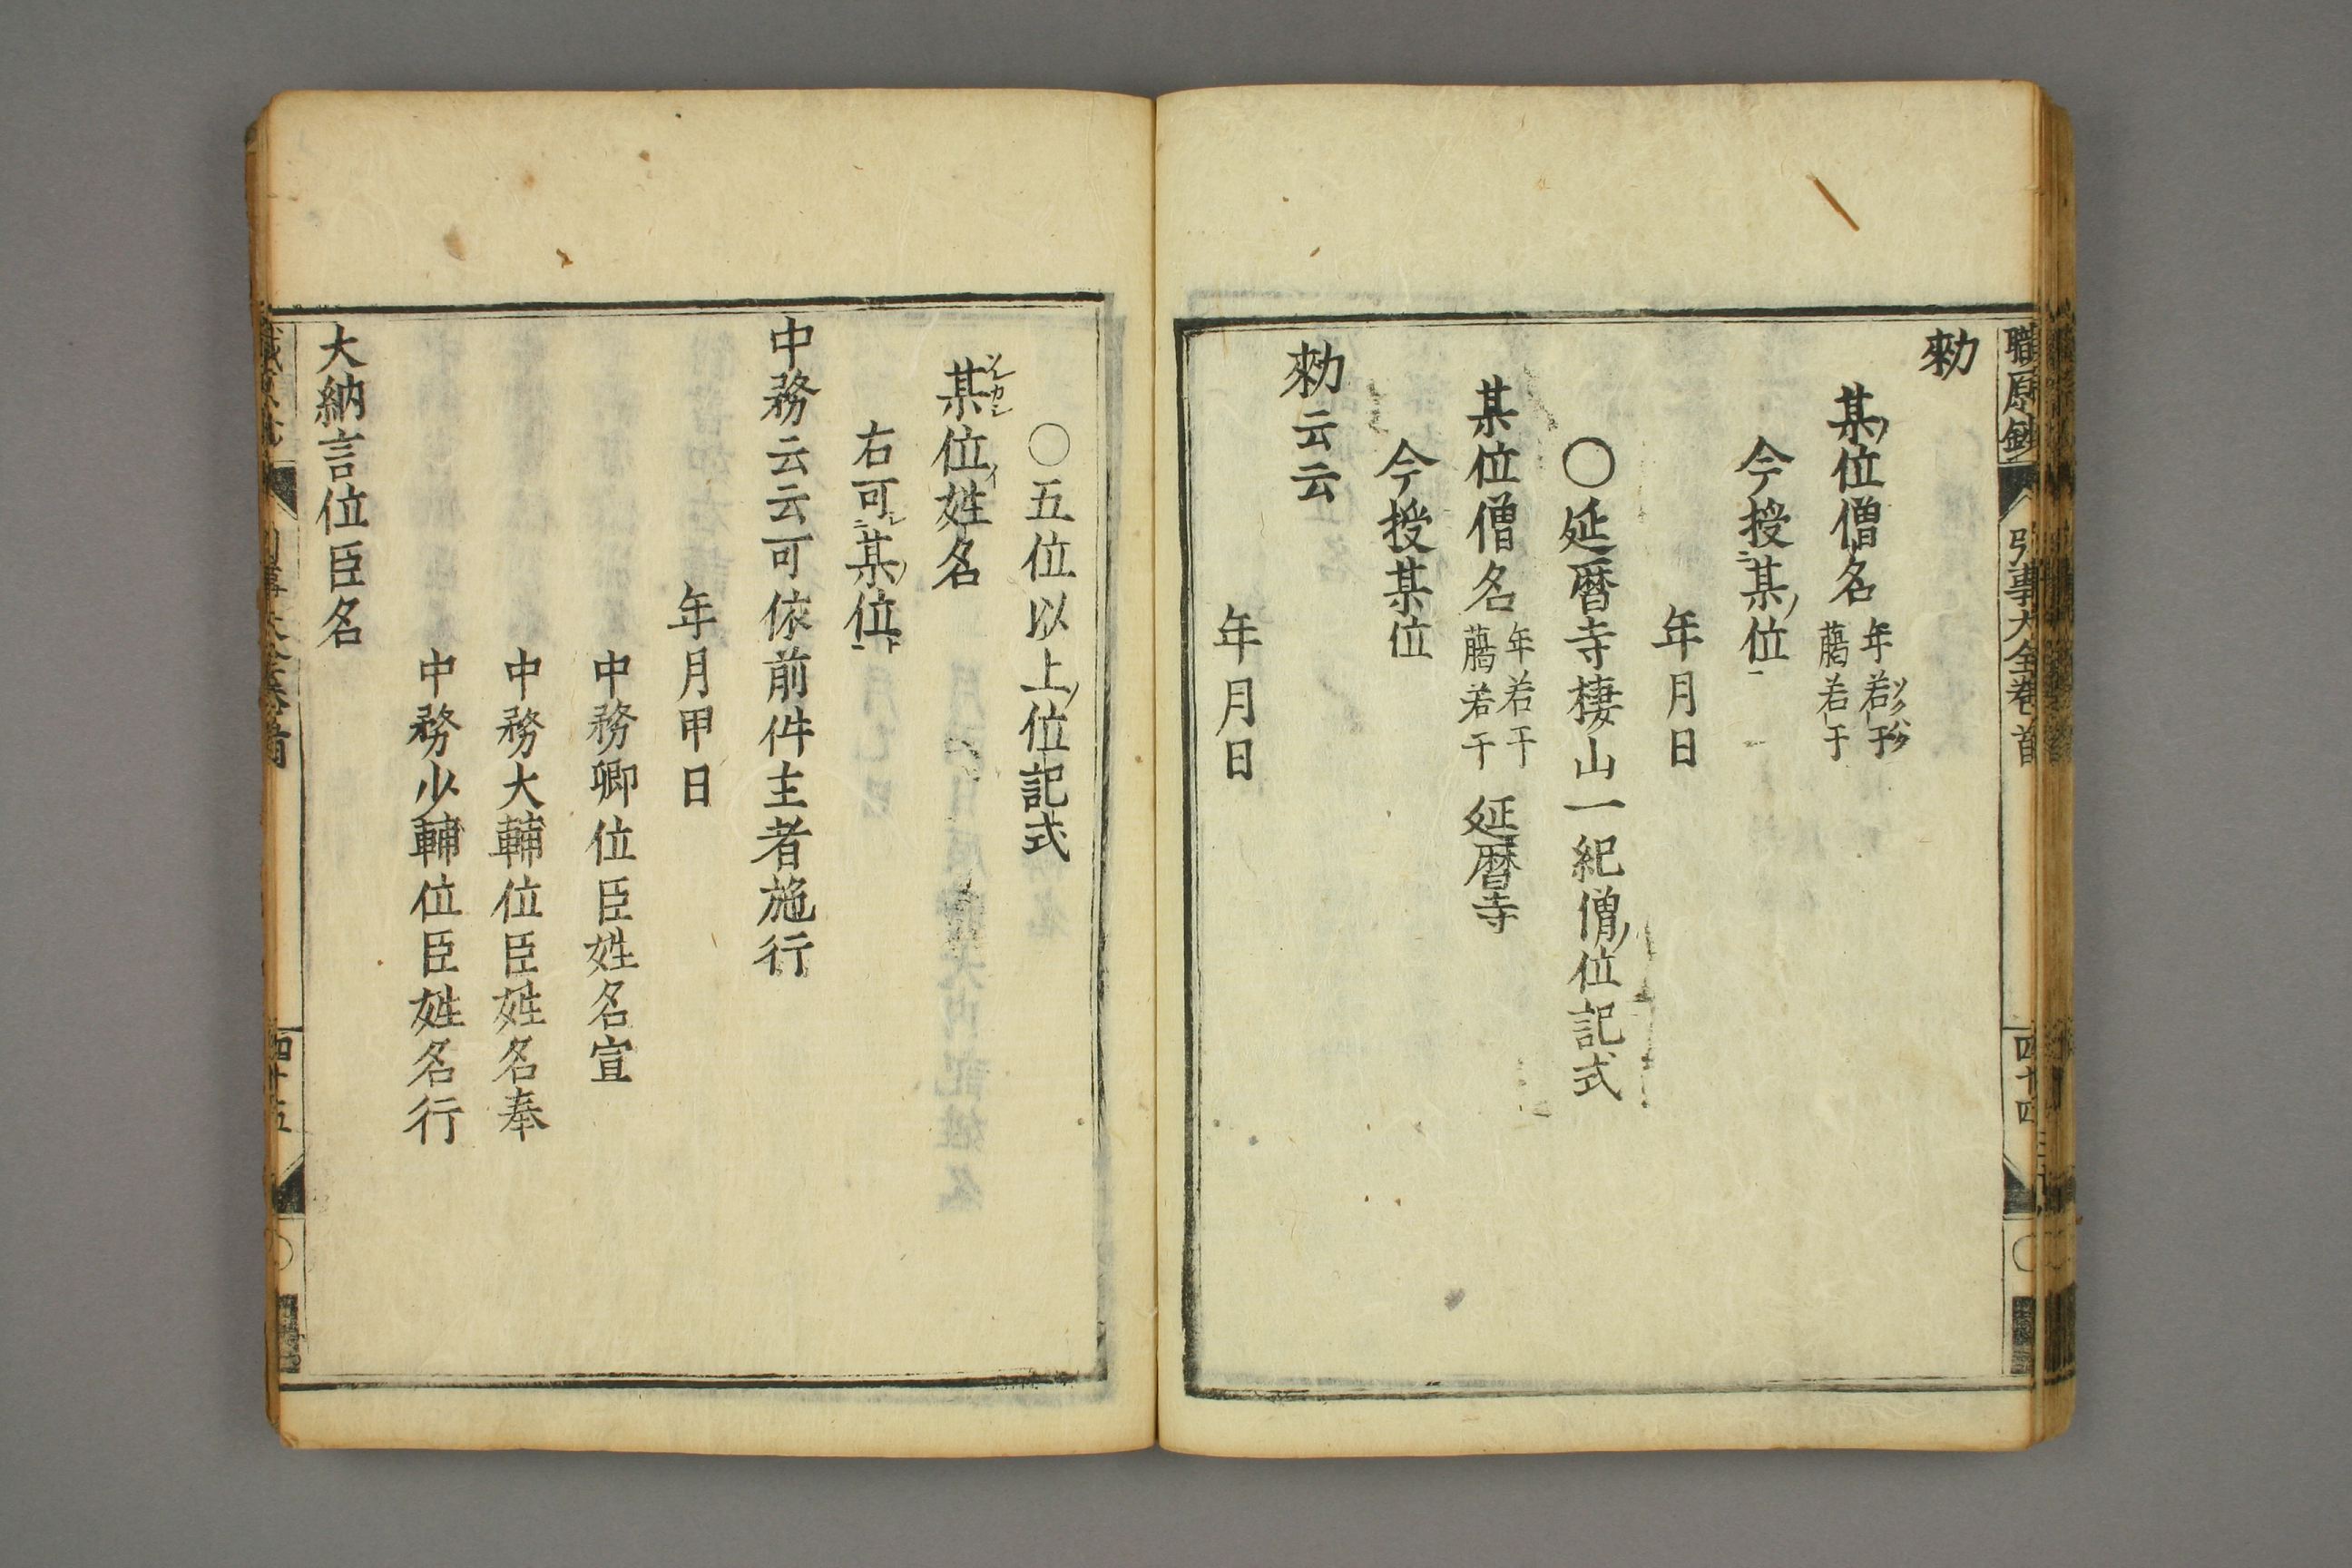 職原鈔 引事大全卷首 四十四
勑
某ノ位僧名 年若干 﨟若干
今授某ノ位
年月日
〇延暦寺棲山一紀僧ノ位記式
某位僧名 年若干 﨟若干 延暦寺
今授某位
勑云云
年月日
〇五位以上ノ位記式
某位姓名
右可某ノ位
中務云云可依前件主者施行
年月甲日
中務卿位臣姓名宣
中務大輔位臣姓名奉
中務少輔位臣姓名行
大納言位臣名
四十五